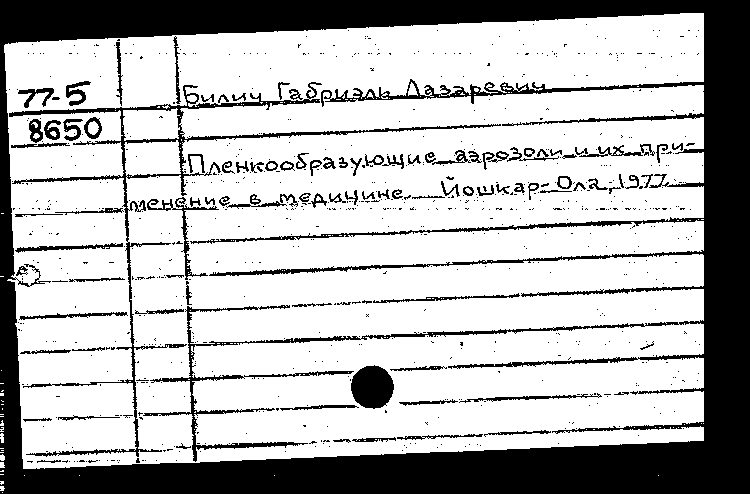 77-5
8650
Билич, Габриэль Лазаревич
Пленкообразующие аэрозоли и их при-
менение в медицине. Йошкар-Ола, 1977